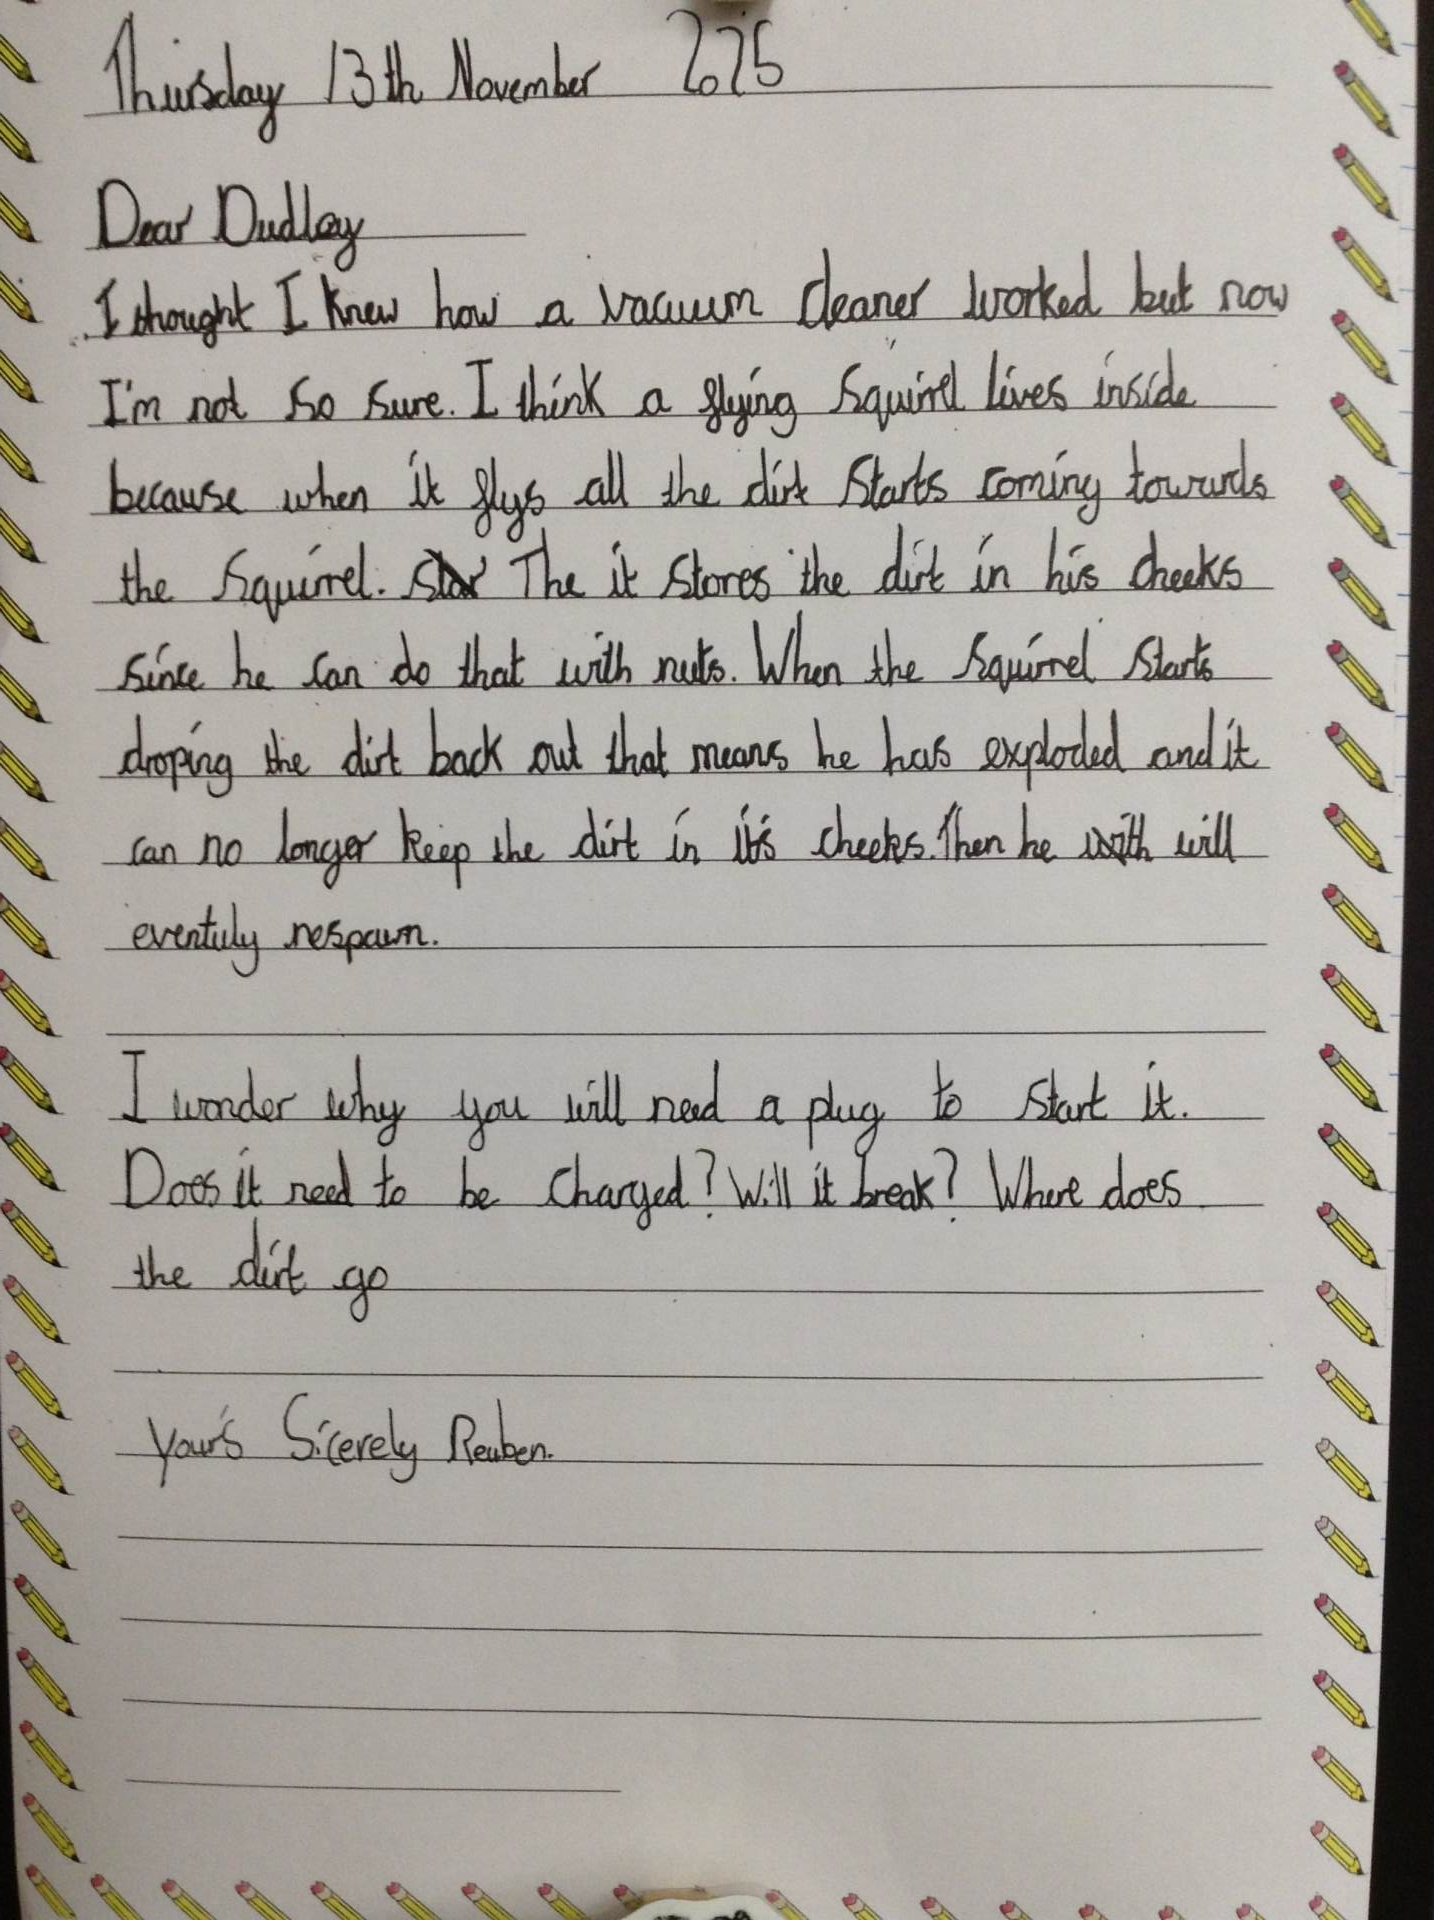 Thursday 13th November 2025
Dear Dudley
I thought I knew how a vacuum cleaner worked but now
I'm not so sure. I think a flying squirrel lives inside
because when it flys all the dirt starts coming towards
the squirrel. The it stores the dirt in his cheeks
since he can do that with nuts. When the squirrel starts
droping the dirt back out that means he has exploded and it
can no longer keep the dirt in it's cheeks. Then he will
eventuly respawn.
I wonder why you will need a plug to start it.
Does it need to be charged? Will it break? Where does
the dirt go
Your's Sicerely Reuben.